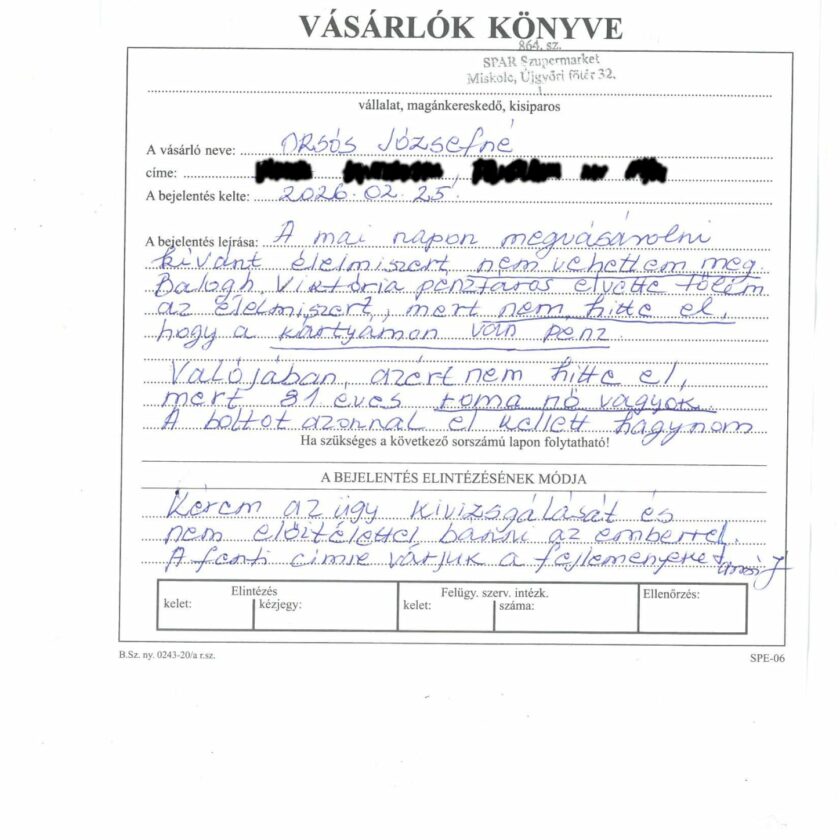 VÁSÁRLÓK KÖNYVE
864. sz.
SPAR Szupermarket
Miskolc, Újgyőri főtér 32.
1
vállalat, magánkereskedő, kisiparos
A vásárló neve: Orsós Józsefné
címe:
A bejelentés kelte: 2026.02.25.
A bejelentés leírása: A mai napon megvásárolni
kívánt élelmiszert nem vehettem meg.
Balogh Viktória pénztáros elvette tőlem
az élelmiszert, mert nem hitte el,
hogy a kártyámon van pénz.
Valójában, azért nem hitte el,
mert 81 éves roma nő vagyok.
A boltot azonnal el kellett hagynom
Ha szükséges a következő sorszámú lapon folytatható!
A BEJELENTÉS ELINTÉZÉSÉNEK MÓDJA
Kérem az ügy kivizsgálását és
nem előítélettel bánni az emberrel.
A fenti címre várjuk a fejleményeket
Elintézés
kelet:
kézjegy:
Felügy. szerv. intézk.
kelet:
száma:
Ellenőrzés:
B.Sz. ny. 0243-20/a r.sz.
SPE-06